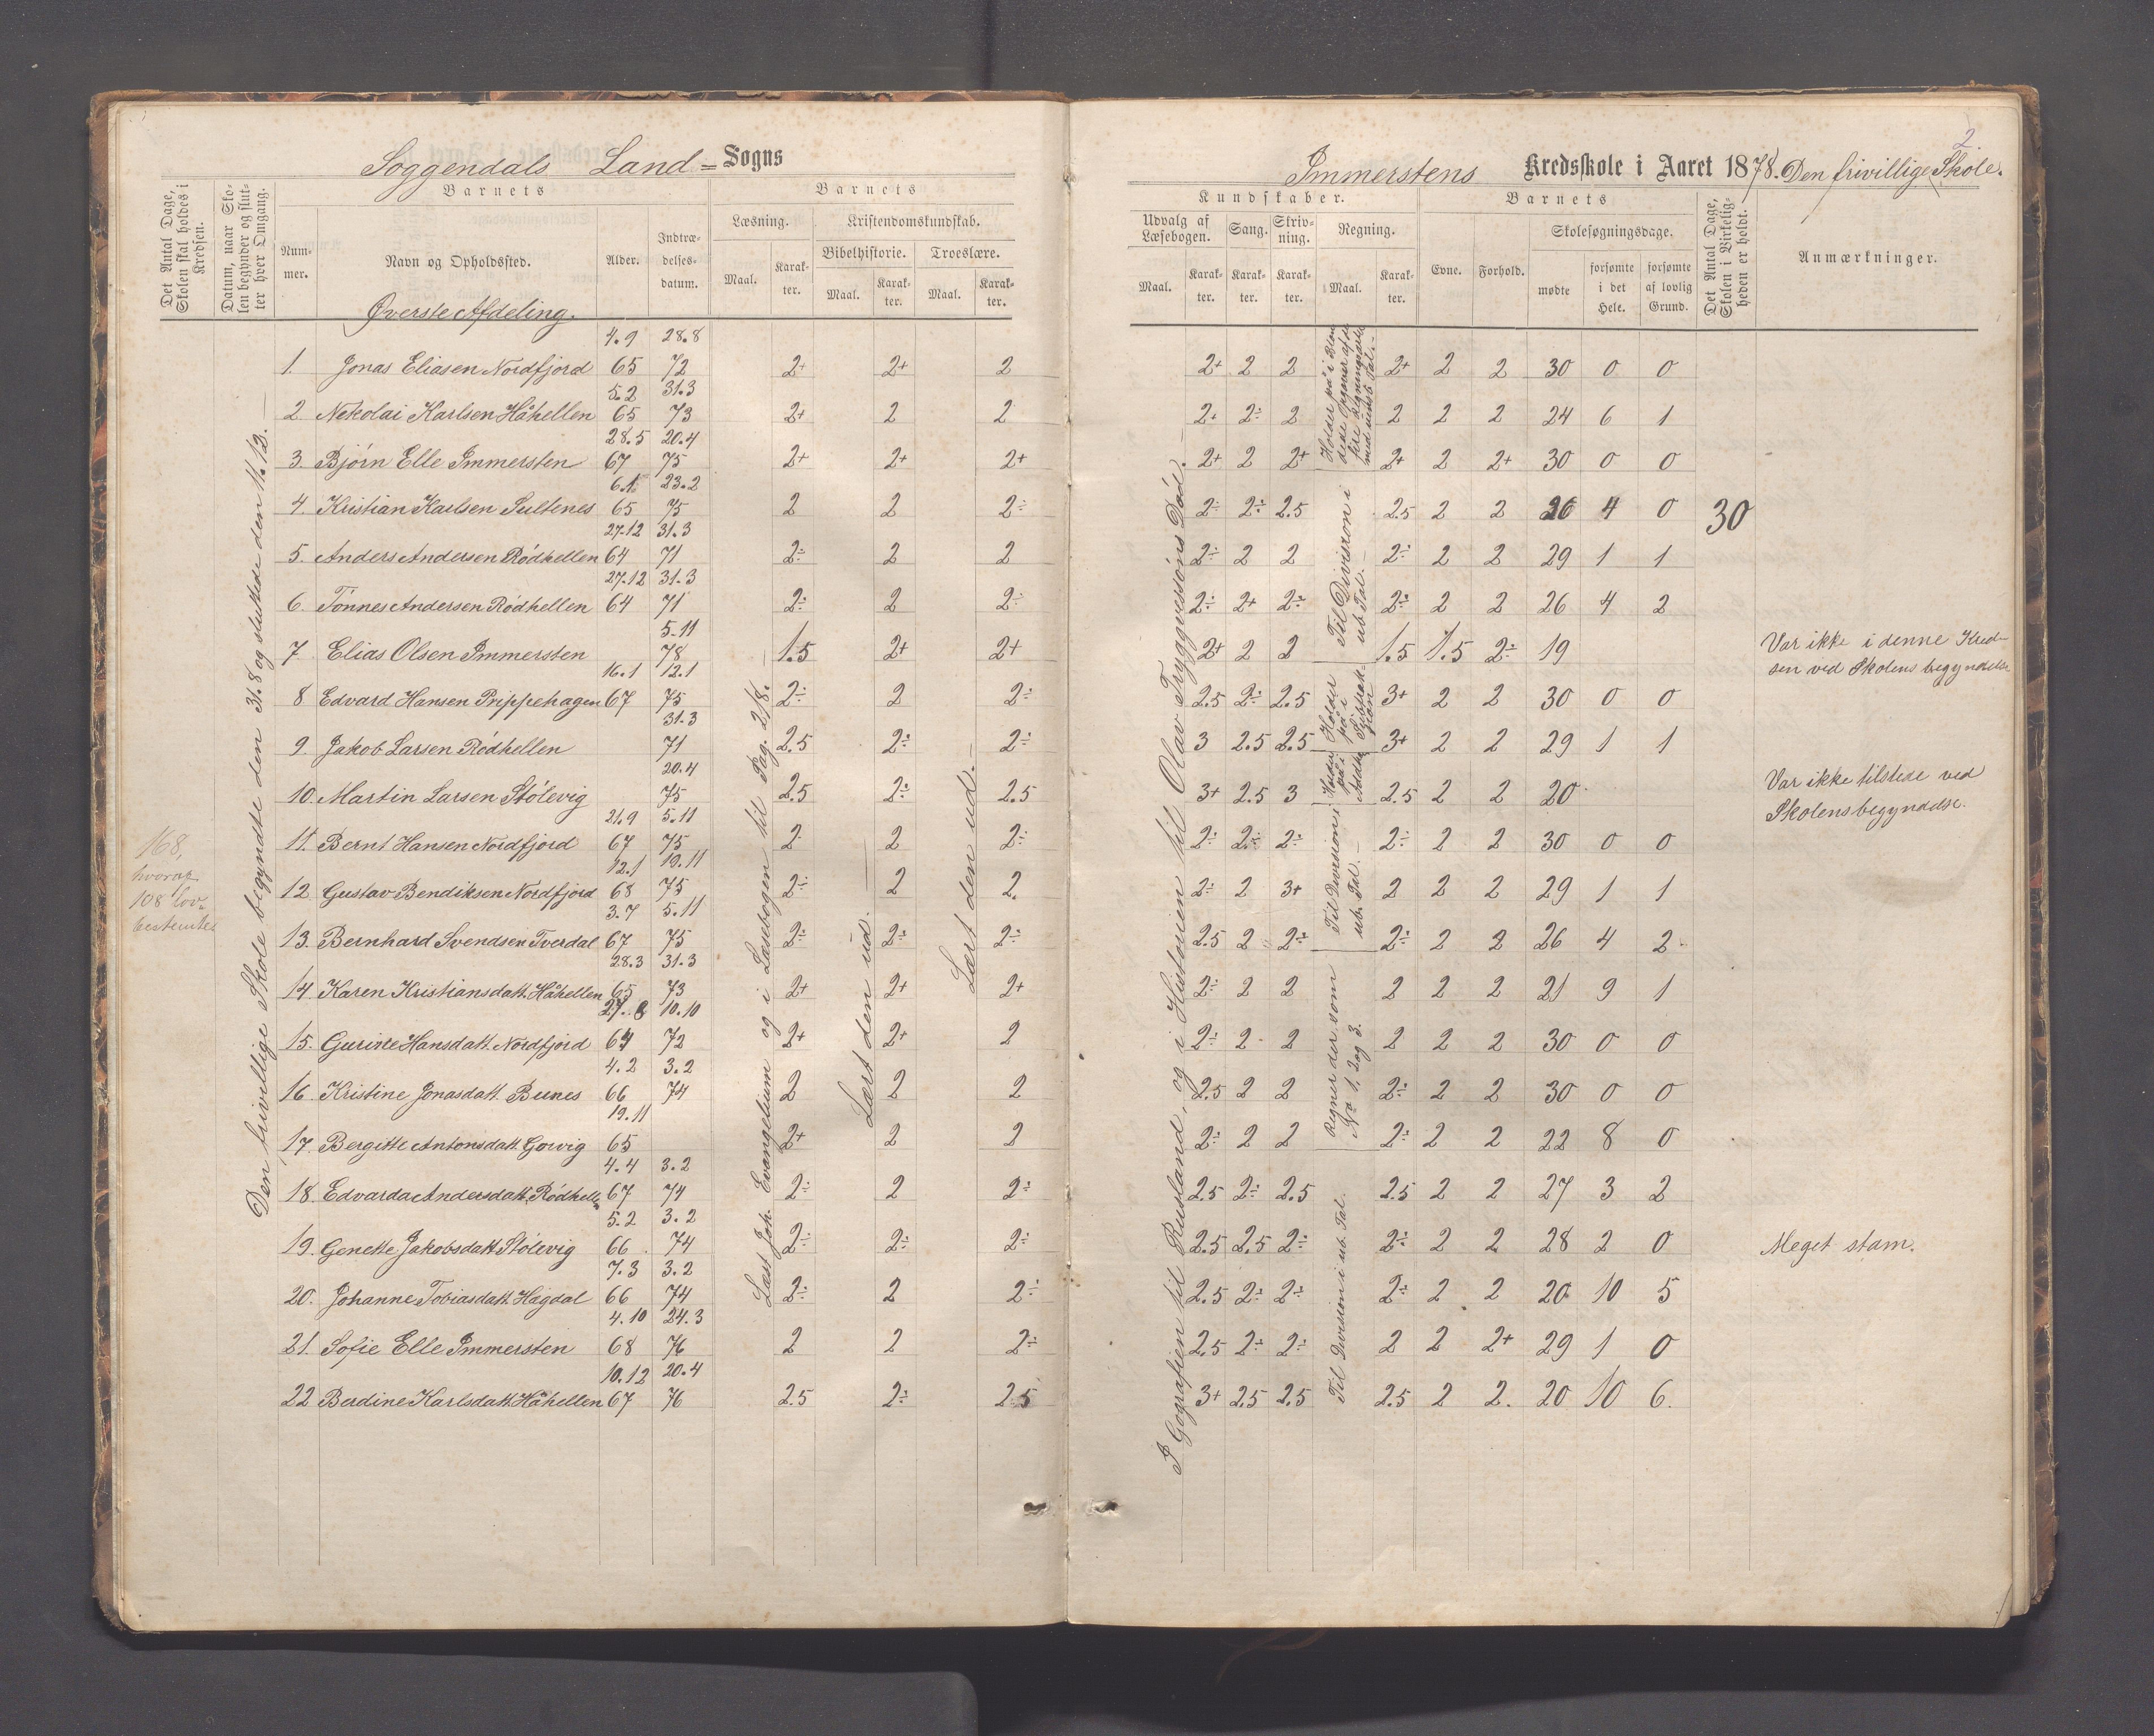 Soggendals Land= Sogns
Det Antal Dage, Skolen skal holdes i Kredsen.
Datum, naar Skolen begynder og slutter hver Omgang.
Barnets
Nummer.
Navn og Opholdssted.
Alder.
Indtrædelsesdatum.
Barnets
Læsning.
Kristendomskundskab.
Bibelhistorie.
Troeslære.
Maal.
Karakter.
Maal.
Karakter.
Maal.
Karakter.
Øverste Afdeling.
168,
hvoraf
108 lov-
bestemte
Den frivillige Skole begyndte den 31.8 og sluttede den 11.12. —
Læst Joh. Evangelium og i Læsebogen til Pag. 218.
Lært den ud. —
Lært den ud. —
4.9 28.8
1. Jonas Eliasen Nordfjord 65 72 2+ 2+ 2
5.2 31.3
2 Nekolai Karlsen Håhellen 65 73 2+ 2 2
28.5 20.4
3. Bjørn Elle Immersten 67 75 2+ 2+ 2+
6.1 23.2
4. Kristian Karlsen Sultenes 65 75 2 2 2÷
27.12 31.3
5. Anders Andersen Rødhellen 64 71 2÷ 2 2
27.12 31.3
6. Tønnes Andersen Rødhellen 64 71 2÷ 2 2÷
5.11
7. Elias Olsen Immersten 78 1.5 2+ 2+
16.1 12.1
8 Edvard Hansen Prippehagen 67 75 2÷ 2 2÷
31.3
9. Jakob Larsen Rødhellen 71 2.5 2÷ 2÷
20.4
10. Martin Larsen Stølevig 75 2.5 2÷ 2.5
21.9 5.11
11. Bernt Hansen Nordfjord 67 75 2÷ 2 2÷
12.1 19.11
12. Gustav Bendiksen Nordfjord 68 75 2÷ 2 2.
3.7 5.11
13. Bernhard Svendsen Tverdal 67 75 2÷ 2÷ 2÷
28.3 31.3
14. Karen Kristiansdatt. Håhellen 65 73 2+ 2+ 2+
27.8 10.10
15. Gurine Hansdatt. Nordfjord 64 72 2+ 2+ 2
4.2 3.2
16. Kristine Jonasdatt. Bunes 66 74 2 2 2
19.11
17. Bergitte Antonsdatt. 65 2+ 2 2
4.4 3.2
18. Edvarda Andersdatt. Rødhellen 67 74 2÷ 2 2÷
5.2 3.2
19. Genette Jakobsdatt. Stølevig 66 74 2÷ 2÷ 2÷
7.3 3.2
20. Johanne Tobiasdatt. Hagdal 66 74 2÷ 2 2÷
4.10 24.3
21. Sofie Elle Immersten 68 76 2 2 2÷
10.12 20.4
22 Berdine Karlsdatt. Håhellen 67 76 2.5 2÷ 2.5
2
Immerstens Kredsskole i Aaret 1878. Den frivillige Skole.
Kundskaber.
Udvalg af Læsebogen.
Sang.
Skrivning.
Regning.
Maal.
Karakter.
Karakter.
Karakter.
Maal.
Karakter.
Barnets
Evne.
Forhold.
Skolesøgningsdage.
mødte
forsømte i det Hele.
forsømte af lovlig Grund.
Det Antal Dage, Skolen i Virkeligheden er holdt.
Anmærkninger.
I Gografien til Rusland, og i Historien til Olav Tryggvesøns Død. —
Til Division i ub. Tal. —
Holder på i Subtraktion
Holder på i Addition
Til Division i ub. Tal. —
Regner der som No 1, 2 og 3.
Til Division i ub. Tal.
2+ 2 2 2+ 2 2 30 0 0
2+ 2÷ 2 2 2 2 24 6 1
2+ 2 2+ 2+ 2 2+ 30 0 0
2÷ 2÷ 2.5 2.5 2 2 26 4 0
30
2÷ 2 2 2÷ 2 2 29 1 1
2÷ 2+ 2÷ 2÷ 2 2 26 4 2
2+ 2 2 1.5 1.5 2÷ 19
Var ikke i denne Kred-
sen ved Skolens begyndelse
2.5 2÷ 2.5 3+ 2 2 30 0 0
3 2.5 2.5 3+ 2 2 29 1 1
3+ 2.5 3 2.5 2 2 20
Var ikke tilstede ved
Skolens begyndelse.
2÷ 2÷ 2÷ 2÷ 2 2 30 0 0
2÷ 2 3+ 2 2 2 29 1 1
2.5 2 2÷ 2÷ 2 2 26 4 2
2÷ 2 2 2 2 2 21 9 1
2÷ 2 2 2 2 2 30 0 0
2.5 2 2 2÷ 2 2 30 0 0
2÷ 2 2 2÷ 2 2 22 8 0
2.5 2÷ 2.5 2.5 2 2 27 3 2
2.5 2.5 2÷ 2÷ 2 2 28 2 0
Meget stam.
2.5 2÷ 2÷ 2÷ 2 2 20 10 5
2.5 2÷ 2÷ 2 2 2+ 29 1 0
3+ 2.5 2.5 2.5 2 2. 20 10 6.